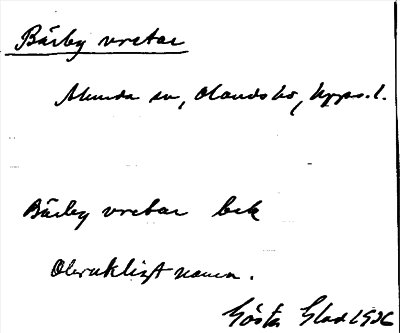 Bärby vretar
Alunda sn, Olands hd, Upps. l.
Bärby vretar bek
Obrukligt namn.
Gösta Glad 1936